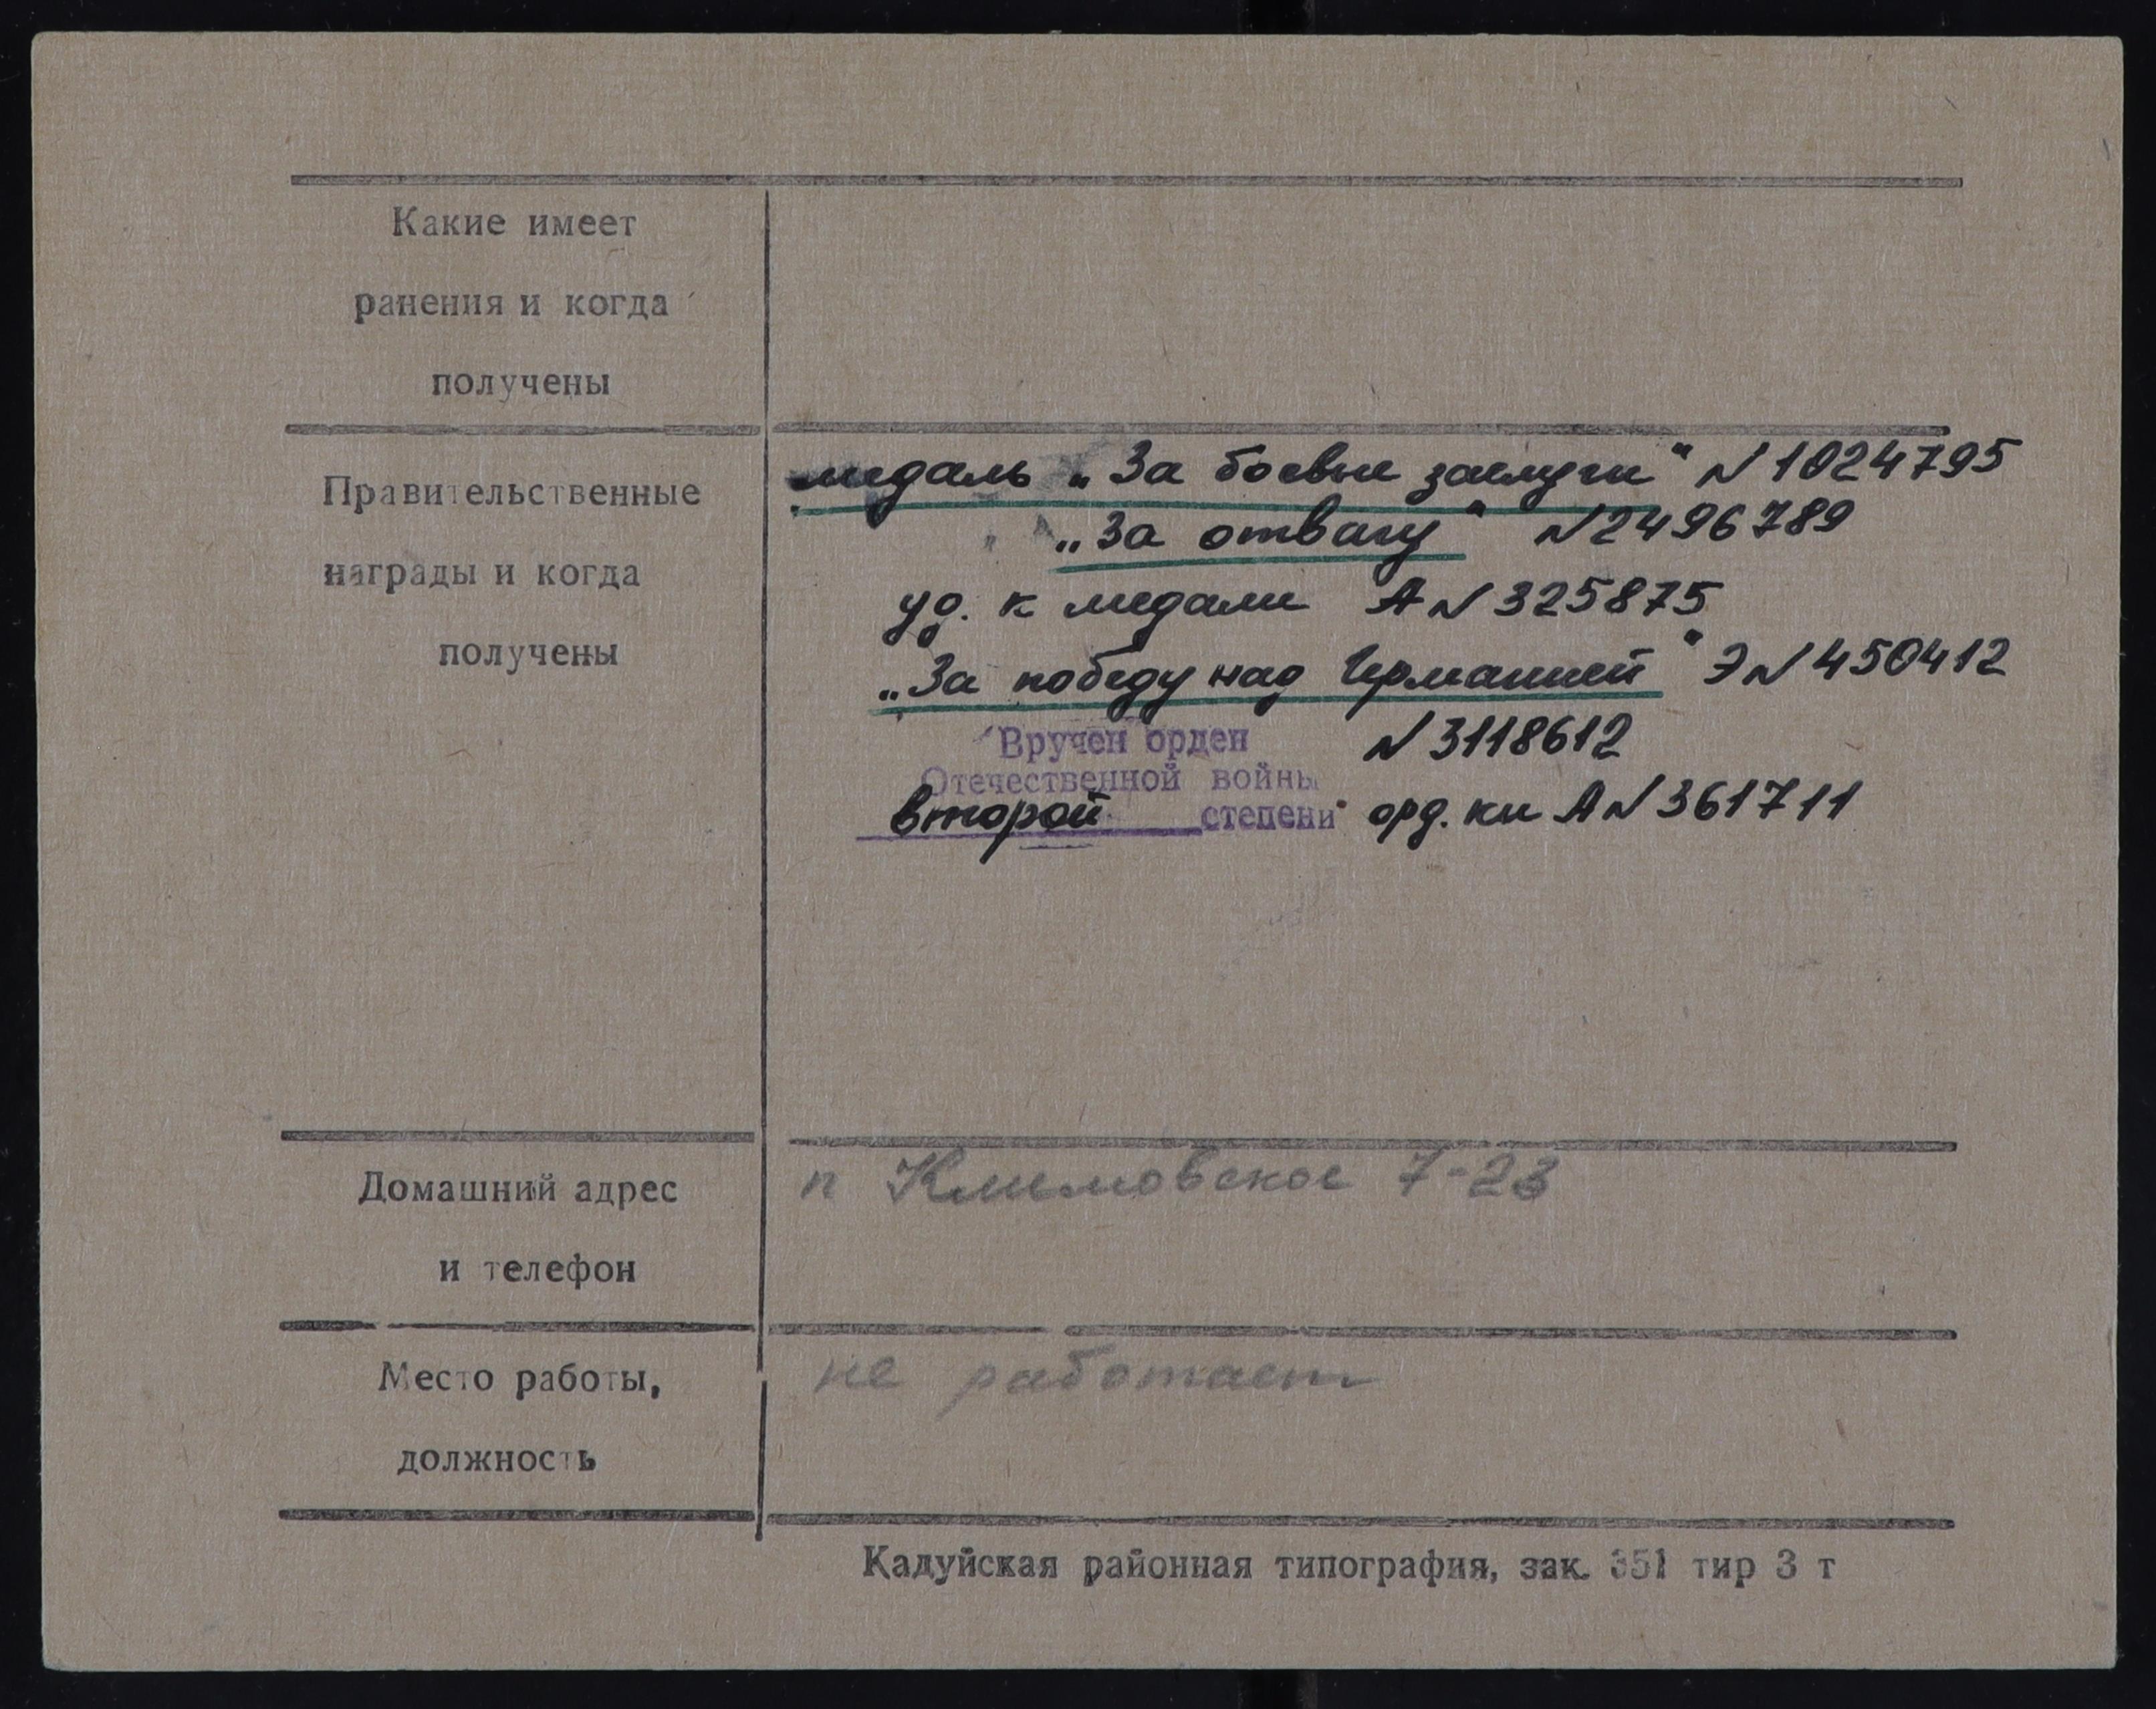 Какие имеет
ранения и когда
получены
Правительственные
награды и когда
получены
медаль „За боевые заслуги“ N 1024795
„За отвагу“ N 2496789
уд. к медали А N 325875
„За победу над Германией“ Э N 450412
Вручен орден N 3118612
Отечественной войны
второй степени орд. кн А N 361711
Домашний адрес
и телефон
п Климовское 7-23
Место работы,
должность
не работает
Кадуйская районная типография, зак. 351 тир 3 т